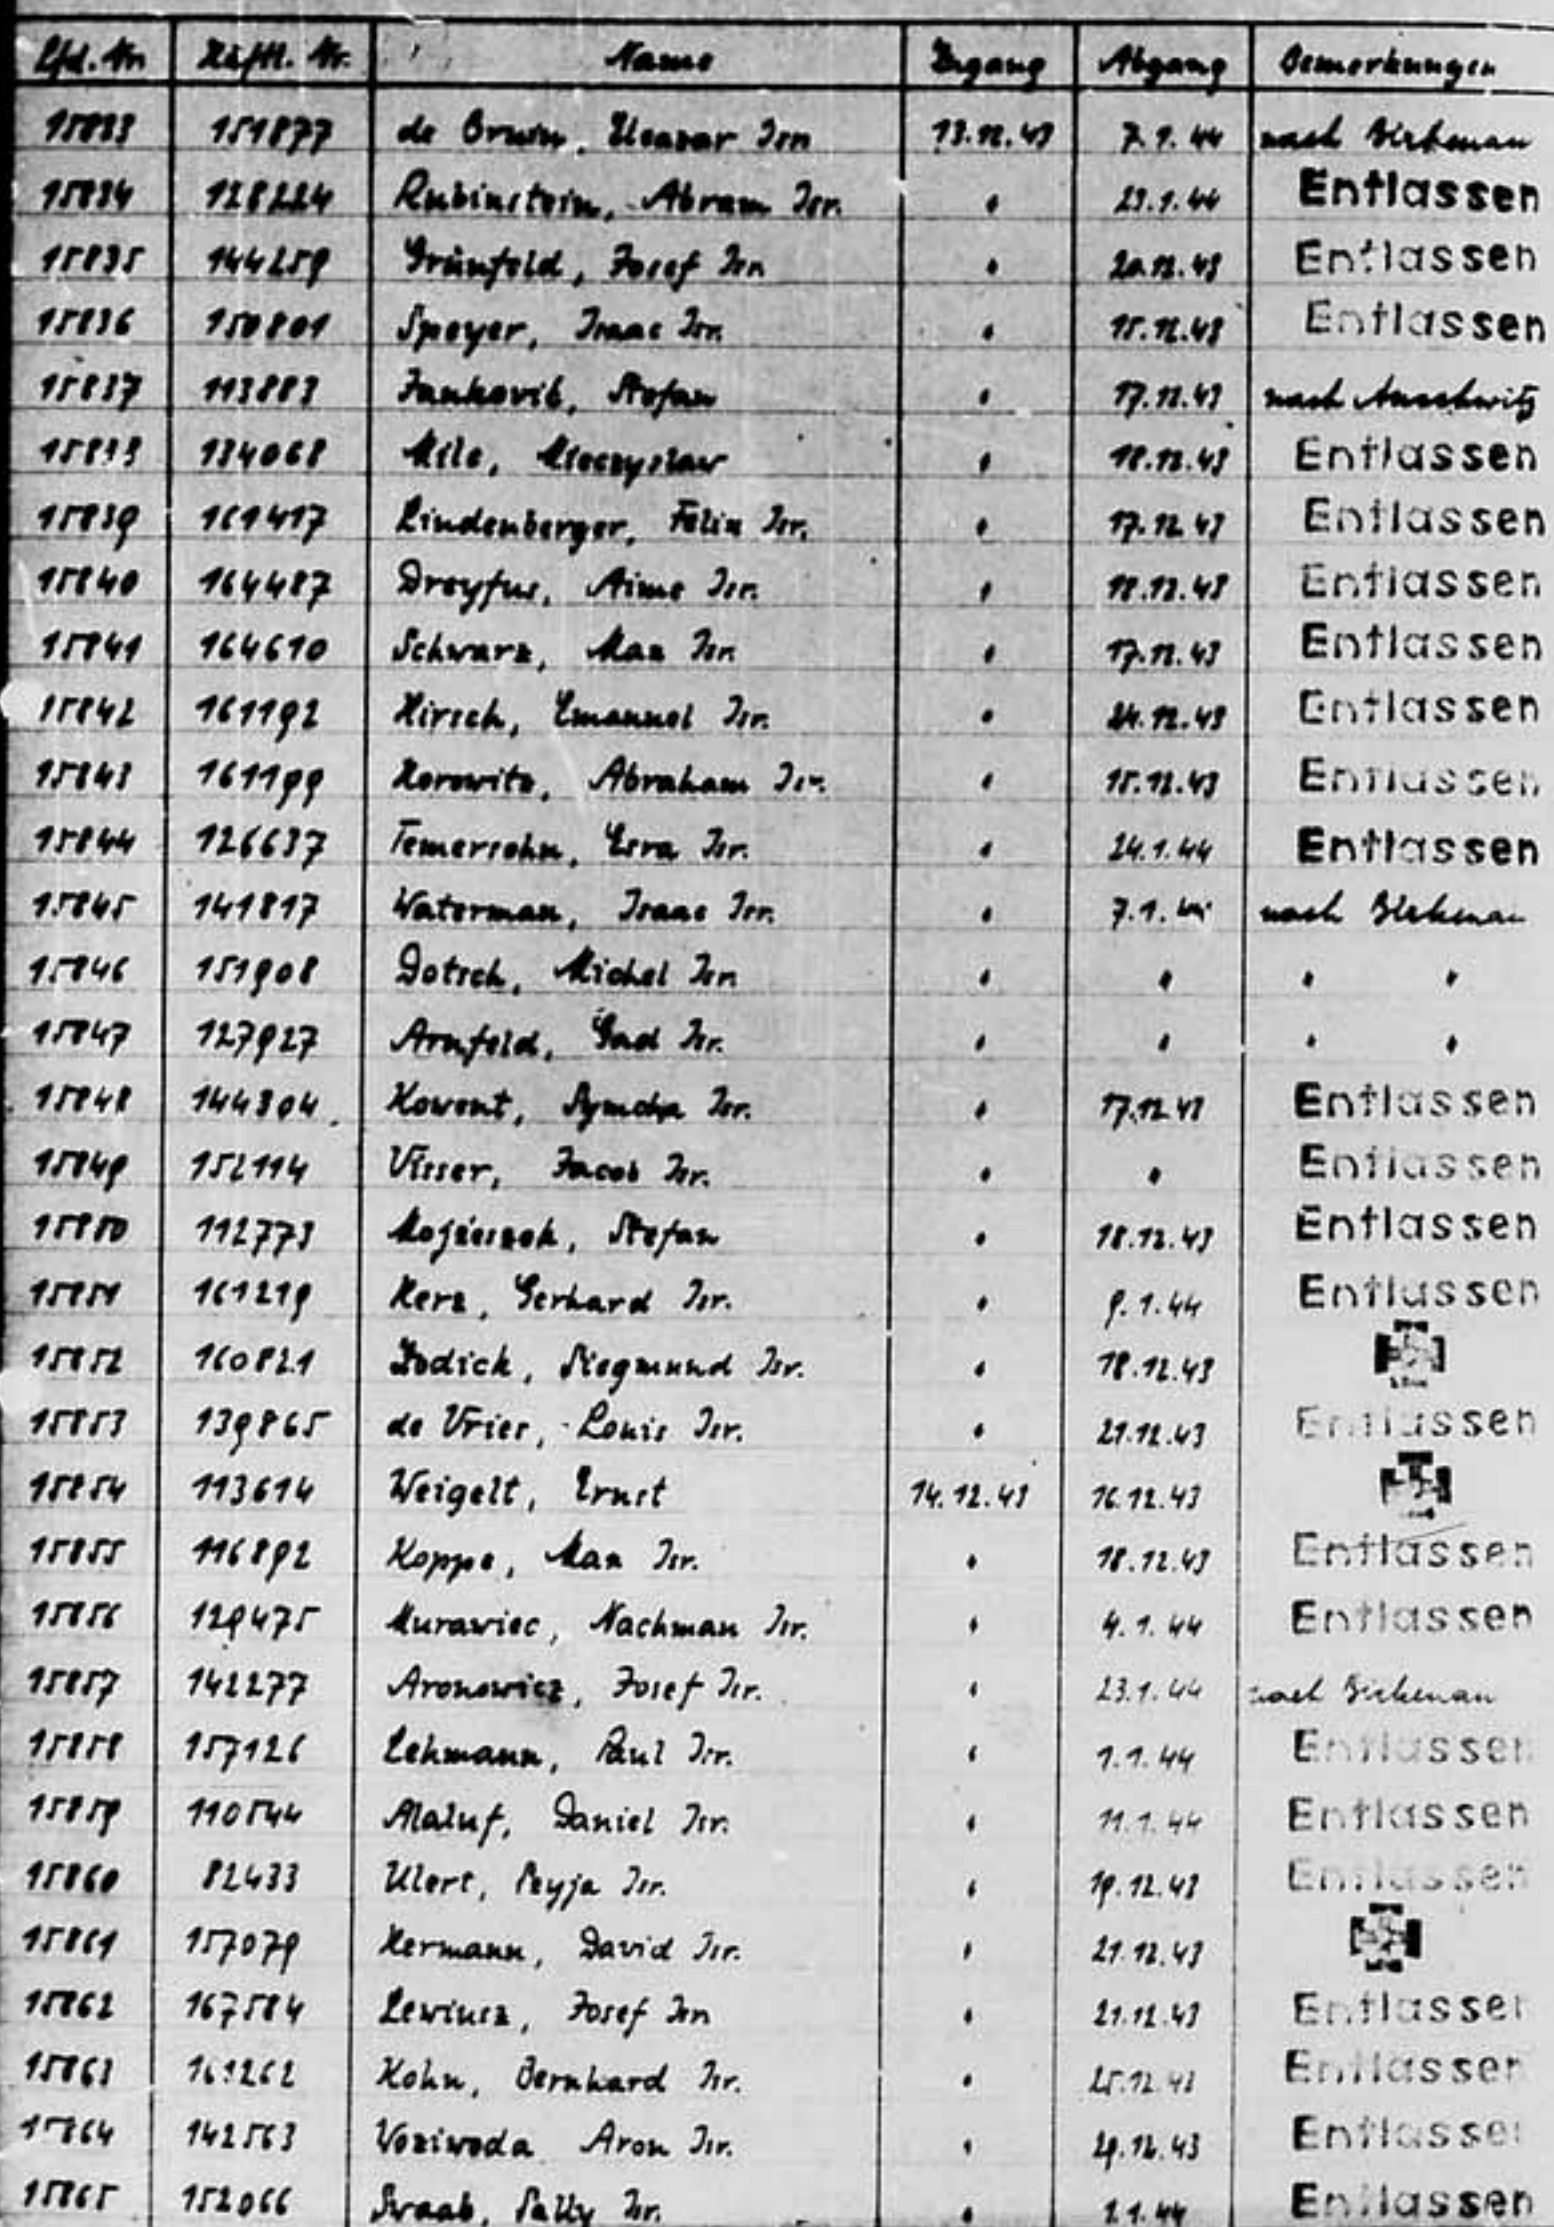 Lfd. Nr. Häftl. Nr. Name Zugang Abgang Bemerkungen
15833 151877 de Bruin, Eleazar Isr. 13.12.43 7.1.44 nach Birkenau
15834 128224 Rubinstein, Abram Isr. " 23.1.44 Entlassen
15835 144259 Grünfeld, Josef Isr. " 20.12.43 Entlassen
15836 150801 Speyer, Isaac Isr. " 15.12.43 Entlassen
15837 113883 Stefan " 17.12.43 nach Auschwitz
15838 134068 Mieczyslaw " 18.12.43 Entlassen
15839 161417 Lindenberger, Felix Isr. " 17.12.43 Entlassen
15840 164487 Dreyfus, Aime Isr. " 18.12.43 Entlassen
15841 164610 Schwarz, Max Isr. " 17.12.43 Entlassen
15842 161192 Hirsch, Emanuel Isr. " 24.12.43 Entlassen
15843 161199 Horowitz, Abraham Isr. " 15.12.43 Entlassen
15844 126637 Temersohn, Esra Isr. " 24.1.44 Entlassen
15845 141817 Waterman, Isaac Isr. " 7.1.44 nach Birkenau
15846 151908 Dotsch, Michel Isr. " " " "
15847 127927 Arnfeld, Gad Isr. " " " "
15848 144304 Kowent, Symcha Isr. " 17.12.43 Entlassen
15849 152114 Visser, Jacob Isr. " " Entlassen
15850 112773 Stefan " 18.12.43 Entlassen
15851 161219 Herz, Gerhard Isr. " 9.1.44 Entlassen
15852 160821 Siegmund Isr. " 18.12.43
15853 139865 de Vries, Louis Isr. " 21.12.43 Entlassen
15854 113614 Weigelt, Ernst 14.12.43 16.12.43
15855 116892 Koppe, Max Isr. " 18.12.43 Entlassen
15856 129475 Murawiec, Nachman Isr. " 4.1.44 Entlassen
15857 142277 Aronowicz, Josef Isr. " 23.1.44 nach Birkenau
15858 157126 Lehmann, Paul Isr. " 1.1.44 Entlassen
15859 110544 Alaluf, Daniel Isr. " 11.1.44 Entlassen
15860 82433 Ulert, Isr. " 19.12.43 Entlassen
15861 157079 Hermann, David Isr. " 21.12.43
15862 167584 Josef Isr. " 21.12.43 Entlassen
15863 161262 Kohn, Bernhard Isr. " 25.12.43 Entlassen
15864 142563 Woziwoda Aron Isr. " 29.12.43 Entlassen
15865 152066 Swaab, Sally Isr. " 2.1.44 Entlassen